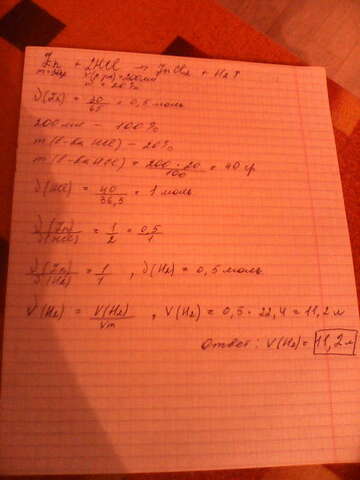 Zn + 2HCl → ZnCl₂ + H₂↑
V(р-ра)=200мл
ω = 20%
ν(Zn) = 30/65 = 0,5 моль
200 мл – 100%
m(в-ва HCl) – 20%
m(в-ва HCl) = 200·20/100 = 40 гр
ν(HCl) = 40/36,5 = 1 моль
ν(Zn)/ν(HCl) = 1/2 = 0,5/1
ν(Zn)/ν(H₂) = 1/1 , ν(H₂) = 0,5 моль
ν(H₂) = V(H₂)/Vm , V(H₂) = 0,5 · 22,4 = 11,2 л
Ответ: V(H₂) = 11,2 л